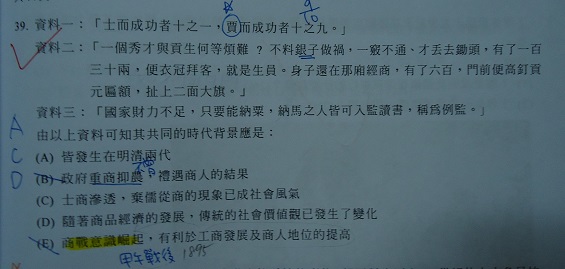 9/10
39. 資料一：「士而成功者十之一，賈而成功者十之九。」
資料二：「一個秀才與貢生何等煩難？不料銀子做禍，一竅不通、才丟去鋤頭，有了一百
三十兩，便衣冠拜客，就是生員。身子還在那廂經商，有了六百，門前便高釘貢
元匾額，扯上二面大旗。」
資料三：「國家財力不足，只要能納粟，納馬之人皆可入監讀書，稱爲例監。」
A 由以上資料可知其共同的時代背景應是：
C (A) 皆發生在明清兩代
D (B) 政府重商抑農，禮遇商人的結果
(C) 士商滲透，棄儒從商的現象已成社會風氣
(D) 隨著商品經濟的發展，傳統的社會價值觀已發生了變化
(E) 商戰意識崛起，有利於工商發展及商人地位的提高
甲午戰後 1895